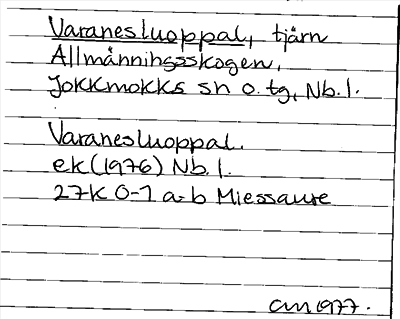 Varanesluoppal, tjärn
Allmänningsskogen,
Jokkmokks sn o. tg, Nb.l.
Varanesluoppal.
ek (1976) Nb.l.
27K 0-1 a-b Miessaure
am 1977.